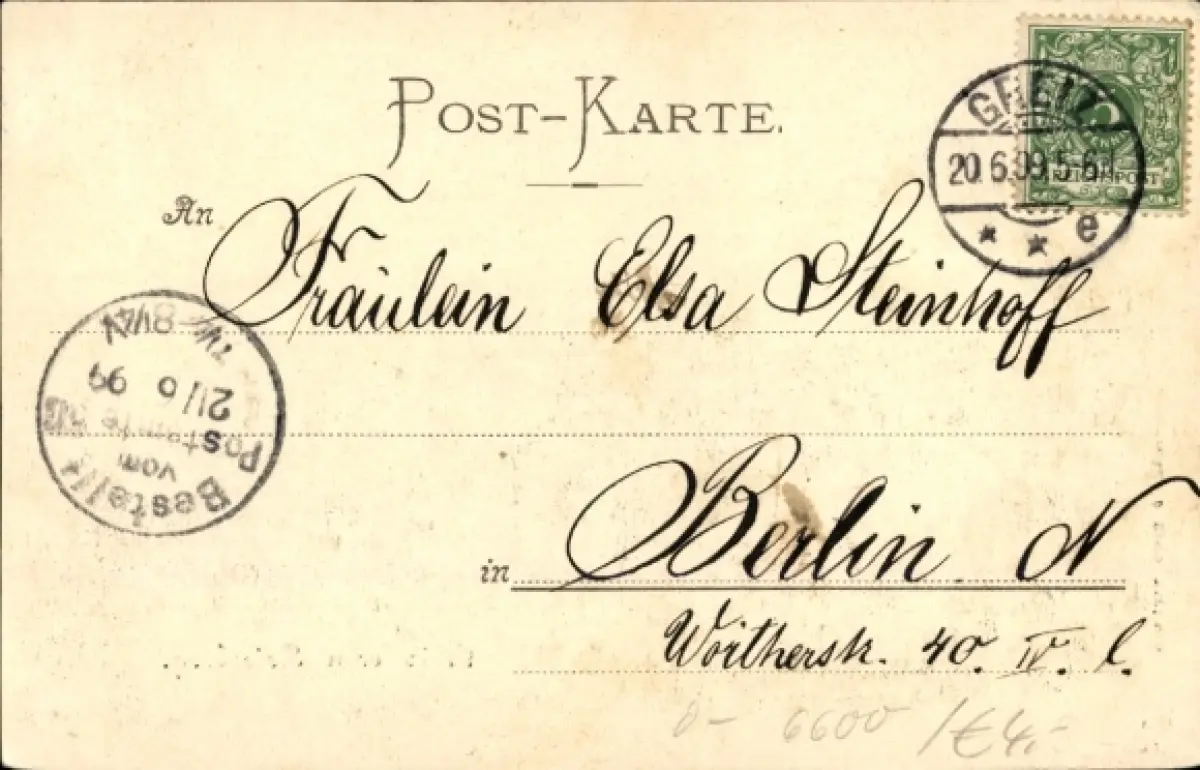 POST-KARTE.
GREIZ
20.6.99.5-6N.
* * e
REICHSPOST
An
Fräulein Elsa Steinhoff
Bestellt
vom
Postamte
21/6 99
in Berlin N
Wörtherstr. 40. IV. l.
6600 /€4.-